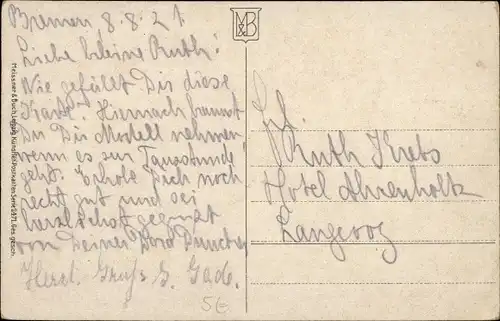 Bremen, 8.8.21.
Liebe kleine Ruth!
Wie gefällt Dir diese
Karte? Hiernach kannst
Du Dir Modell nehmen
wenn es zur Tanzstunde
geht. Erhole Dich noch
recht gut und sei
herzlichst gegrüßt
von Deiner
Herzl. Gruß G. Gade.
5€
M&B
Meissner & Buch, Leipzig Künstler-Postkarten Serie Ges. gesch.
Frl.
Ruth Krebs
Hotel Ahrenholtz
Langeoog